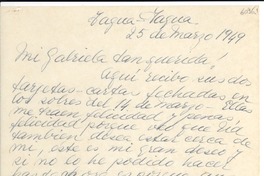 Tagua-Tagua.
25 de marzo 1949
Mi Gabriela tan querida!
Aquí recibo sus dos
tarjetas-cartas fechadas en
los sobres del 14 de marzo - Ellas
me traen felicidad y penas,
felicidad porque veo que Ud
tambien desea estar cerca de
me, este es mi gran deseo y
si no lo he podido hacer